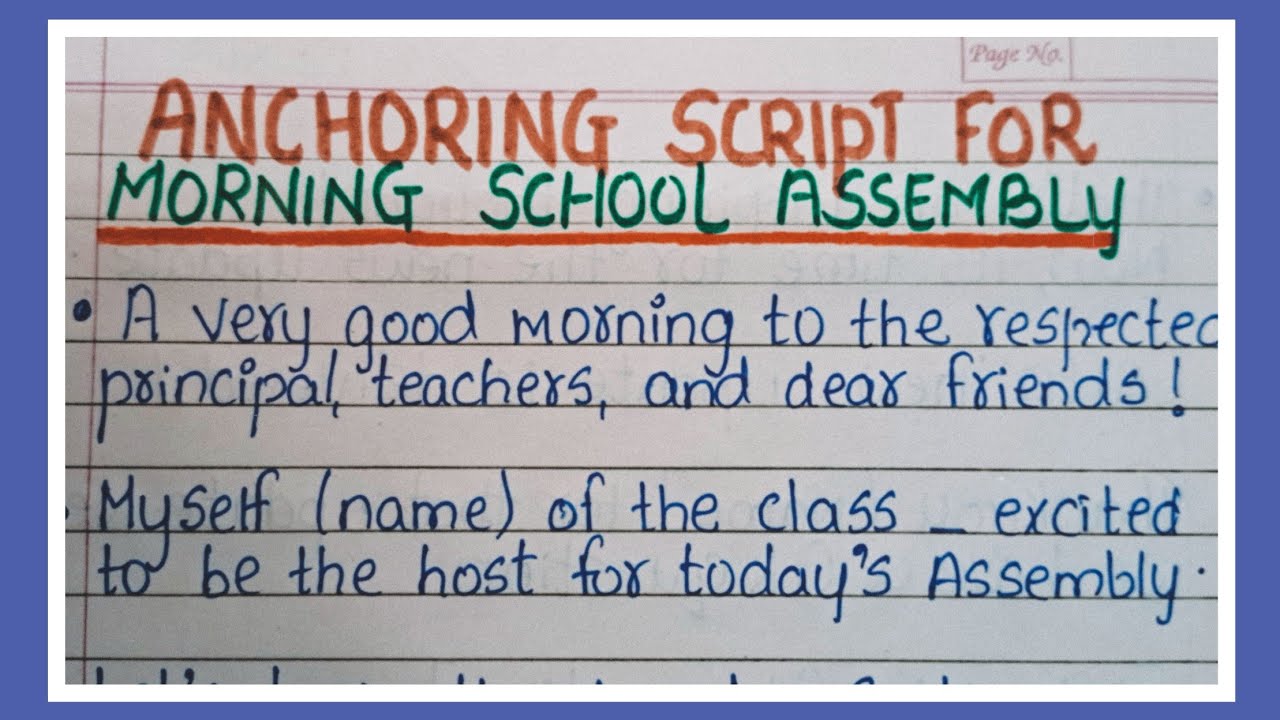 Page No.
ANCHORING SCRIPT FOR
MORNING SCHOOL ASSEMBLY
• A very good morning to the respected
principal, teachers, and dear friends!
Myself (name) of the class _ excited
to be the host for today's Assembly.